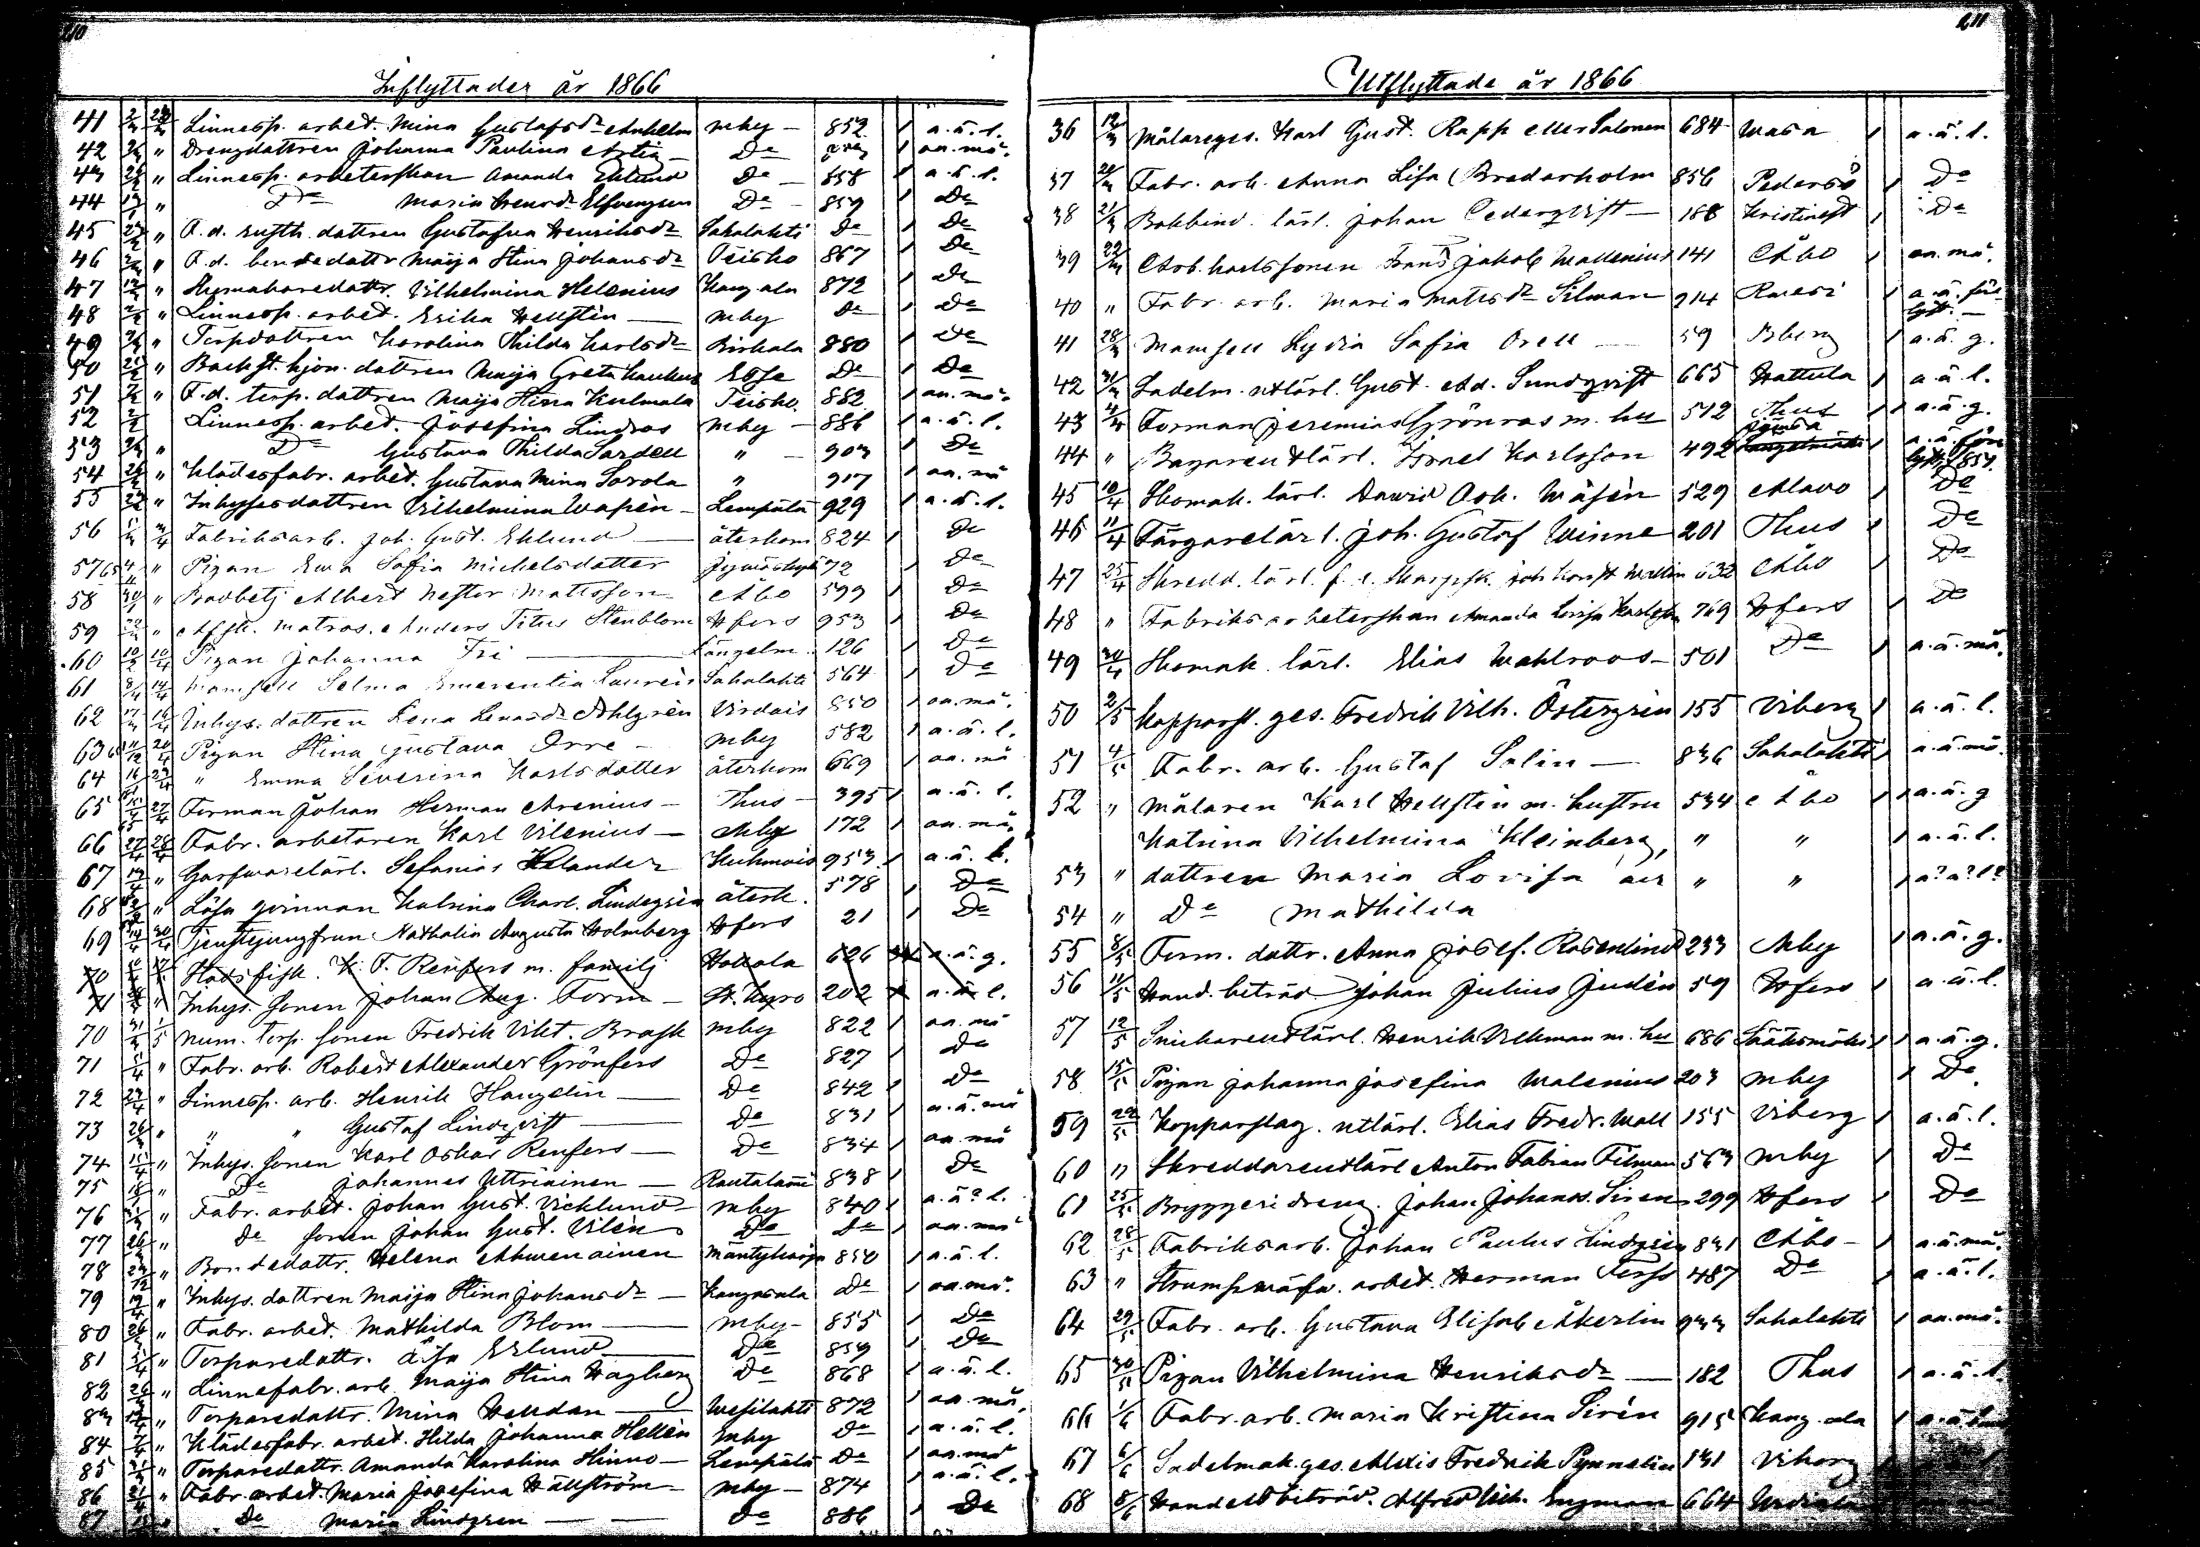 210
Inflyttader år 1866
41 Linnesp. arbet. Mina Gustafsdr Anhelm mby 852 a.ä.l.
42 Drengdottren Johanna Paulina De an.mä.
43 Linnesp. arbeterskan Amanda Eklund De 858 a.ä.l.
44 De Maria De 859 De
45 F.d. dottren Gustafva Henriksdr Sahalahti De De
46 F.d. bondedottr Maija Stina Johansdr Teisko 867 De
47 Vilhelmina Helenius Kangasala 872 De
48 Linnesp. arbet. Erika Hellstén mby De De
49 Torpdottren Karolina Thilda Karlsdr Birkala 880 De
50 Backst. hjon. dottren Maija Greta De De
51 F.d. torp. dottren Maija Stina Kulmala Teisko 882 an.mä.
52 Linnesp. arbet. Josefina Lindros mby 886 a.ä.l.
53 De Gustava Thilda Sardell " 903 De
54 Klädesfabr. arbet. Gustava Mina Sorola " 917 an.mä
55 Inhysesdottren Vilhelmina Wafén Lempäla 929 a.ä.l.
56 Fabriksarb. Joh. Gust. Eklund återkom 824 De
57 Pigan Eva Sofia Michelsdotter 72 De
58 Albert Nestor Mattsson Åbo 599 De
59 matros. Anders Titus Stenblom Hfors 953 De
60 Pigan Johanna Fri Längelm. 126 De
61 Mamsell Selma Emerentia Laurén Sahalahti 564 De
62 Inhys. dottren Lena Lenasdr Ahlgrén Virdois 850 an.mä.
63 Pigan Stina Gustava Orre mby 582 a.ä.l.
64 " Emma Severina Karlsdotter återkom 669 an.mä
65 Forman Johan Herman Arenius Thus 395 a.ä.l.
66 Fabr. arbetaren Karl Vilenius Mby 172 an.mä.
67 Garfvarelärl. Sefanias Helander Kuhmois 953 a.ä.l.
68 Lösa qvinnan Katrina Charl. Lindegrén återk. 578 De
69 Tjenstejungfrun Nathalia Augusta Holmberg Hfors 21 De
70 Stadsfisk. K. F. Renfors m. familj 626 a.ä.g.
71 Inhys. sonen Johan Aug. Form St. Kyro 202 a.ä.l.
70 Num. torp. sonen Fredrik Vikt. Brask mby 822 an.mä
71 Fabr. arb. Robert Alexander Grönfors De 827 De
72 Linnesp. arb. Henrik Hangelin De 842 De
73 " " Gustaf Lindqvist De 831 a.ä.mä
74 Inhys. sonen Karl Oskar Renfors De 834 an.mä
75 De Johannes Uttriainen Rautalami 838 De
76 Fabr. arbet. Johan Gust. Vicklund mby 840 a.ä?l.
77 De sonen Johan Gust. Vilén De De an.mä
78 Bondedottr. Helena Ahvenainen Mäntyharju 850 a.ä.l.
79 Inhys. dottren Maija Stina Johansdr Kangasala De an.mä.
80 Fabr. arbet. Mathilda Blom mby 855 De
81 Torparedottr. Eklund De 859 De
82 Linnefabr. arb. Maija Stina Hagberg De 868 a.ä.l.
83 Torparedottr. Mina Helldan Wesilahti 872 an.mä.
84 Klädesfabr. arbet. Hilda Johanna Hellén mby De a.ä.l.
85 Torparedottr. Amanda Karolina Hinno Lempälä De an.mä
86 Fabr. arbet. Maria Josefina Hällström mby 874 a.ä.l.
87 De Maria Lindgren De 886 De
211
Utflyttade år 1866
36 12/3 Målareges. Karl Gust. Rapp eller Salonen 684 Wasa a.ä.l.
37 Fabr. arb. Anna Lisa Brederholm 856 Pedersö De
38 21/3 Bokbind. lärl. Johan Cederqvist 188 Kristinest De
39 22/3 Arb. karlssonen Frans Jakob Wallenius 141 Åbo an.mä.
40 " Fabr. arb. Maria Mattsdr Silman 914 a.ä. för lyst.
41 28/3 Mamsell Lydia Sofia Orell 59 Bberg a.ä.g.
42 31/3 Sadelm. utlärl. Gust. Ad. Sundqvist 665 Hattula a.ä.l.
43 Forman Jeremias Grönroos m. hu 512 Thus a.ä.g.
44 " Bagareutlärl. Israel Karlsson 492
45 10/4 Skomak. lärl. David Osk. Wäfén 529 Alavo De
46 11/4 Färgarelärl. Joh. Gustaf Winne 201 Thus De
47 25/4 Skredd. lärl. 632 Åbo De
48 " Fabriksarbeterskan Amanda Lovisa 769 Hfors De
49 30/4 Skomak. lärl. Elias Wahlroos 501 De a.ä.mä.
50 2/5 Kopparsl. ges. Fredrik Vilh. Östergrén 155 Viberg a.ä.l.
51 4/5 Fabr. arb. Gustaf Salin 836 Sahalahti a.ä.mä.
52 " Målaren Karl Hellstén m. hustru 534 Åbo a.ä.g
Katrina Vilhelmina Kleinberg, " " a.ä.l.
53 " dottren Maria Lovisa " " a?ä?l?
54 " De Mathilda
55 8/5 Form. dottr. Anna Josef. Rosenlind 233 Mby a.ä.g.
56 11/5 Hand. beträd Johan Julius Judén 59 Hfors a.ä.l.
57 12/5 Snickareutlärl. Henrik Vilkman m. hu 686 Sääksmäki a.ä.g.
58 15/5 Pigan Johanna Josefina Walenius 203 mby De
59 Kopparslag. utlärl. Elias Fredr. Wall 155 Viberg a.ä.l.
60 " Skreddareutlärl Anton Fabian Filman 563 mby De
61 25/5 Bryggeridreng. Johan Johanss. Siren 299 Hfors De
62 28/5 Fabriksarb. Johan Paulus Lindgrén 831 Åbo a.ä.mä.
63 " Strumpväfv. arbet. Herman Forss 487 De a.ä.l.
64 29/5 Fabr. arb. Gustava Elisab Åkerlin 933 Sahalahti an.mä.
65 30/5 Pigan Vilhelmina Henriksdr 182 Thus a.ä.l.
66 1/6 Fabr. arb. Maria Kristina Sirén 915 Kangasala a.ä.l.
67 6/6 Sadelmak. ges. Alexis Fredrik 131 Viborg
68 8/6 Handelsbeträd. Alfred Vilh. Engman 664